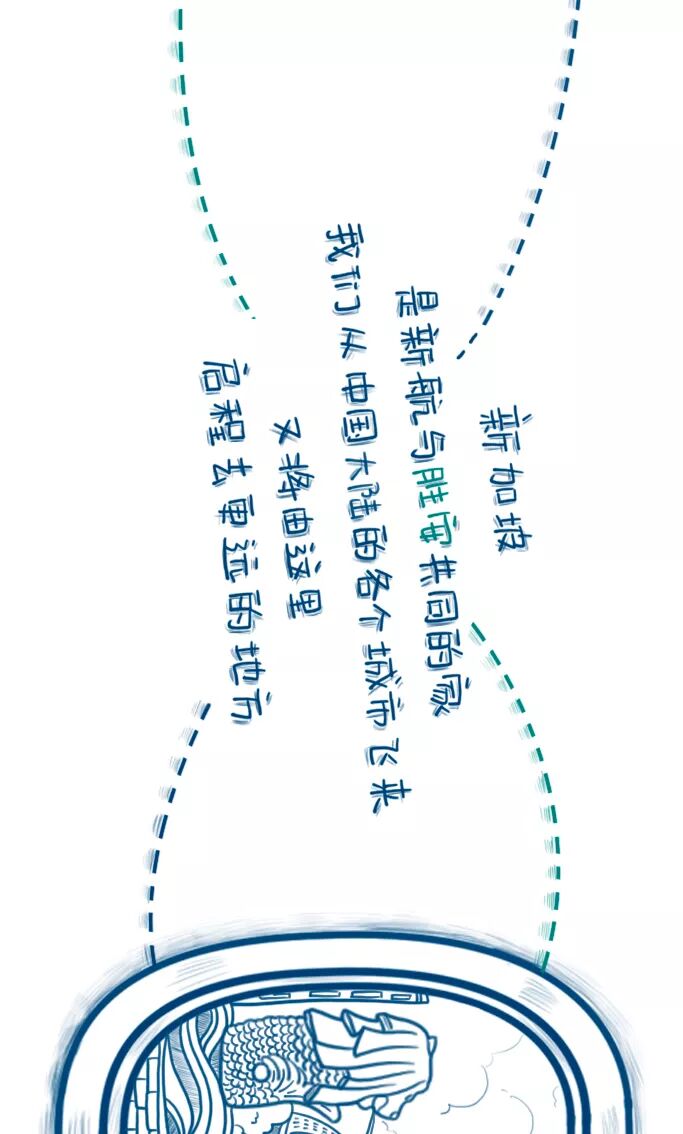 新加坡
是新航与胜安共同的家
我们从中国大陆的各个城市飞来
又将由这里
启程去更远的地方